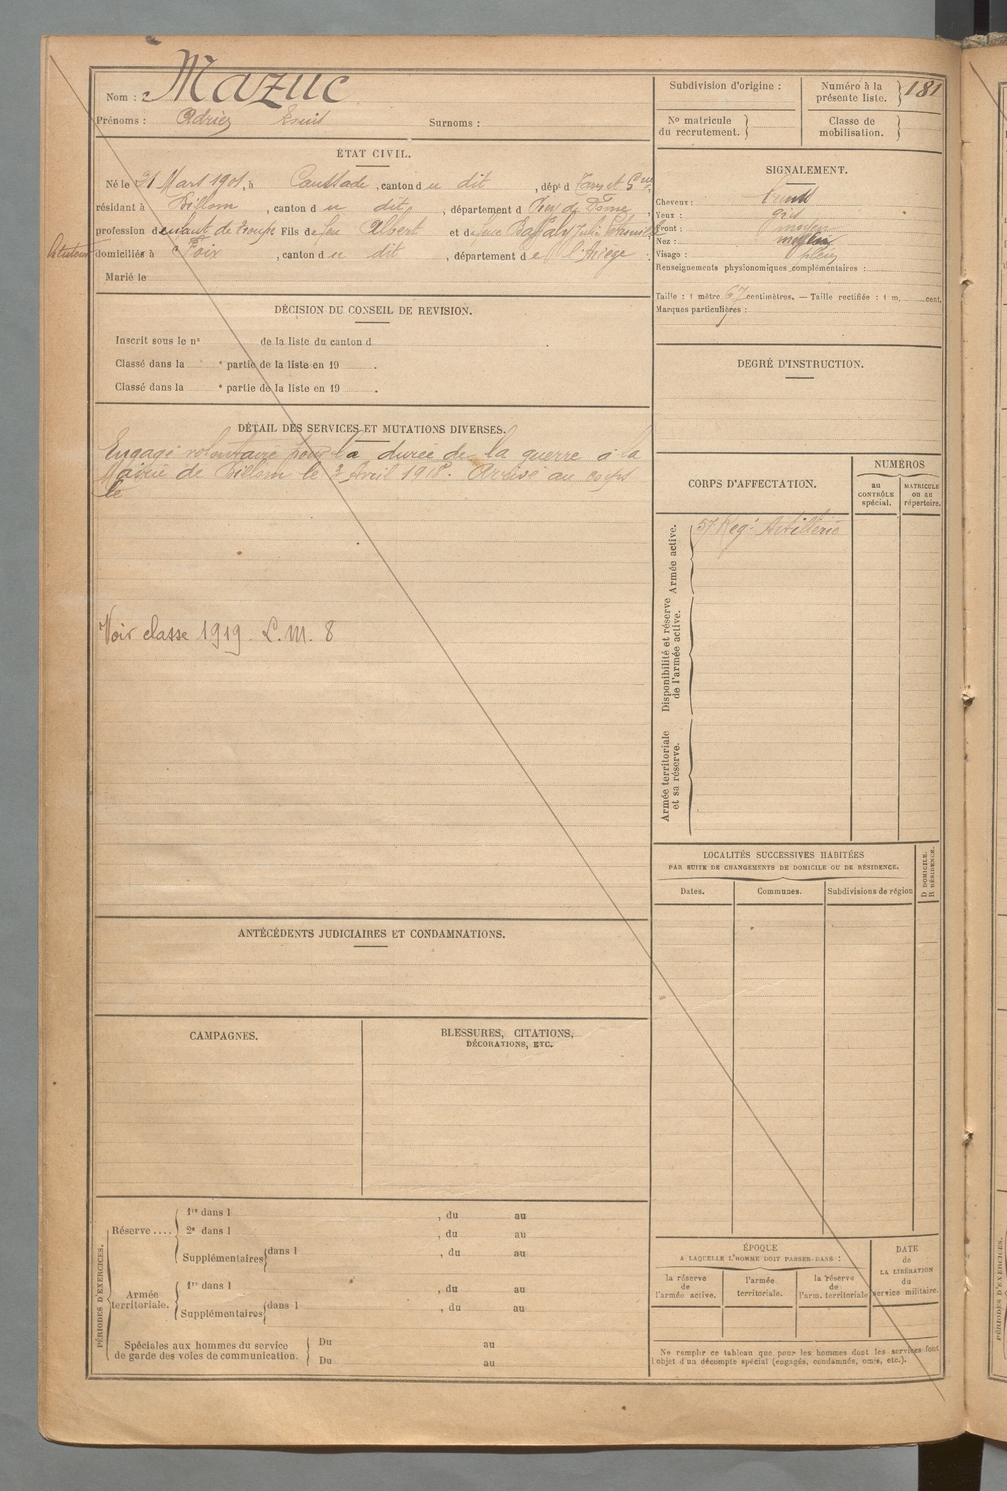 Nom : Mazuc
Prénoms : Adrien Emile Surnoms :
ÉTAT CIVIL.
Né le 31 Mars 1901, à Caussade, canton du dit, dépt d Tarn et Gne,
résidant à Billom, canton du dit, département d Puy de Dôme,
profession d enfant de troupe Fils de feu Albert et de feue Julie
domiciliés à Foix, canton du dit, département de l'Ariège.
Marié le
DÉCISION DU CONSEIL DE REVISION.
Inscrit sous le no de la liste du canton d
Classé dans la e partie de la liste en 19 .
Classé dans la e partie de la liste en 19 .
DÉTAIL DES SERVICES ET MUTATIONS DIVERSES.
Engagé volontaire pour la durée de la guerre à la
Mairie de Billom le 3 Avril 1918. Arrivé au corps
le
Voir classe 1919 L.M. 8
ANTÉCÉDENTS JUDICIAIRES ET CONDAMNATIONS.
CAMPAGNES.
BLESSURES, CITATIONS,
DÉCORATIONS, ETC.
PÉRIODES D'EXERCICES.
Réserve....
1re dans l , du au
2e dans l , du au
Supplémentaires dans l , du au
Armée
territoriale.
1re dans l , du au
Supplémentaires dans l , du au
Spéciales aux hommes du service
de garde des voies de communication.
Du au
Du au
Subdivision d'origine :
Numéro à la
présente liste. 181
No matricule
du recrutement.
Classe de
mobilisation.
SIGNALEMENT.
Cheveux :
Yeux : gris
Front : moyen
Nez : moyen
Visage : plein
Renseignements physionomiques complémentaires :
Taille : 1 mètre 67 centimètres. — Taille rectifiée : 1 m. cent.
Marques particulières :
DEGRÉ D'INSTRUCTION.
CORPS D'AFFECTATION.
NUMÉROS
au
CONTRÔLE
spécial.
MATRICULE
ou au
répertoire.
Armée active.
57 Regt Artillerie
Disponibilité et réserve
de l'armée active.
Armée territoriale
et sa réserve.
LOCALITÉS SUCCESSIVES HABITÉES
PAR SUITE DE CHANGEMENTS DE DOMICILE OU DE RÉSIDENCE.
D DOMICILE.
R RÉSIDENCE.
Dates.
Communes.
Subdivisions de région
ÉPOQUE
A LAQUELLE L'HOMME DOIT PASSER DANS :
DATE
de
LA LIBÉRATION
du
service militaire.
la réserve
de
l'armée active.
l'armée
territoriale.
la réserve
de
l'arm. territoriale
Ne remplir ce tableau que pour les hommes dont les services font
l'objet d'un décompte spécial (engagés, condamnés, omis, etc.).
PÉRIODES D'EXERCICES